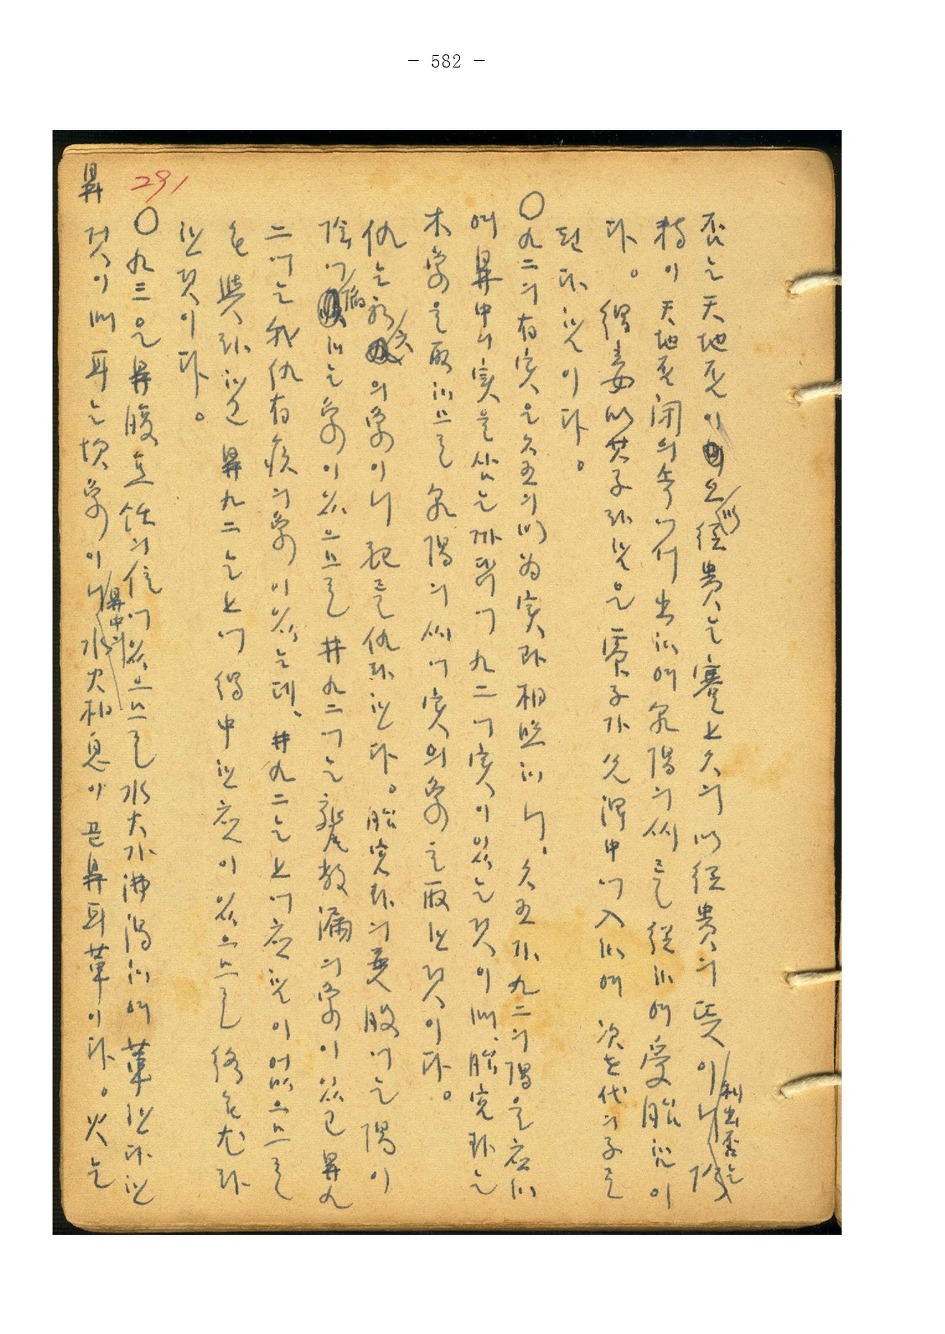 - 582 -
否는 天地否이 으로 從貴는 蹇上六의 以從貴의 뜻이니 利出否는 陰
特이 天地否閉의 속에서 出하여 乾陽의 씨를 從하여 受胎함이
다。得妾以其子라함은 震子가 兌澤中에 入하여 次世代의 子로
된다함이다。
○九二의 有實은 六五의 以為實과 相照하니、六五가 九二의 陽을 應하
여 鼎中에 實을 삼는 까닭에 九二에 實이 있는 것이며、胎宮과는
木象을 取하므로 乾陽의 씨에 實의 象을 取한 것이다。
仇는 의 象이니 로 仇라한다。胎宮 의 에는 陽이
陰에 陷하는 象이 있으므로 井九二에는 甕敝漏의 象이 있고 鼎九
二에는 我仇有疾의 象이 있는데、井九二는 上에 應함이 없으므로
无與라하고 鼎九二는 上에 得中한 應이 있으므로 終无尤라
한 것이다。
291
○九三은 鼎腹 의 位에 있으므로 水火가 沸湯하여 革한다 한
鼎 것이며 耳는 坎象이니 鼎中의 水火相息이 곧 鼎耳革이다。火는